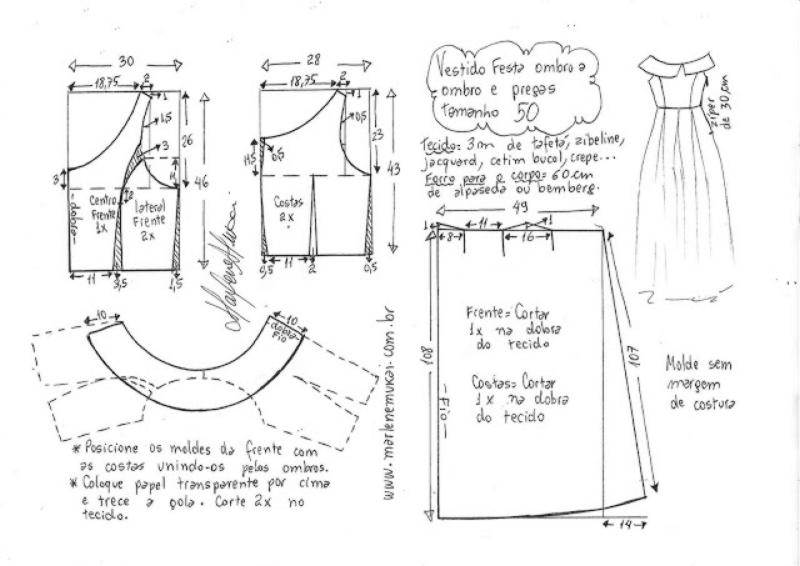 30
18,75
2
1
1,5
3
26
46
11
3
2
Centro
Frente
1x
lateral
Frente
2x
-dobra-
11
3,5
1,5
28
18,75
2
1
0,5
23
43
11,5
0,5
Costas
2x
0,5
11
2
0,5
Vestido Festa ombro a
ombro e pregas
tamanho 50
Tecido: 3m de tafetá, zibeline,
jacquard, cetim bucol, crepe...
Forro para o corpo = 60 cm
de alpaseda ou bemberg.
ziper
de 30 cm
49
1
11
1
8
16
108
107
Frente = Cortar
1x na dobra
do tecido
Costas = Cortar
1x na dobra
do tecido
-Fio-
14
Molde sem
margem
de costura
10
10
dobra-
Fio
* Posicione os moldes da frente com
as costas unindo-os pelos ombros.
* Coloque papel transparente por cima
e trece a gola. Corte 2x no
tecido.
www.marlenemukai.com.br
Marlene Mukai